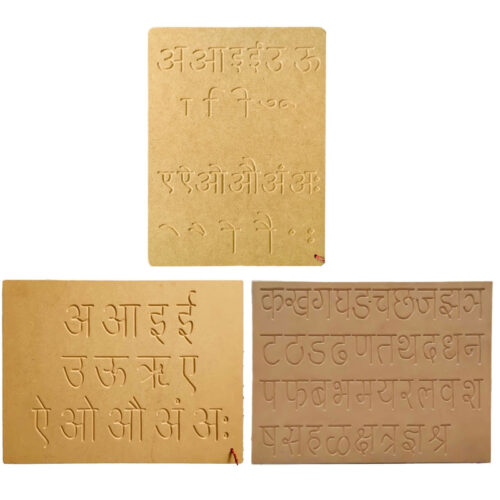 अ आ इ ई उ ऊ
ा ि ी ु ू
ए ऐ ओ औ अं अः
े ै ो ौ ं ः
अ आ इ ई
उ ऊ ऋ ए
ऐ ओ औ अं अः
क ख ग घ ङ च छ ज झ ञ
ट ठ ड ढ ण त थ द ध न
प फ ब भ म य र ल व श
ष स ह ळ क्ष त्र ज्ञ श्र